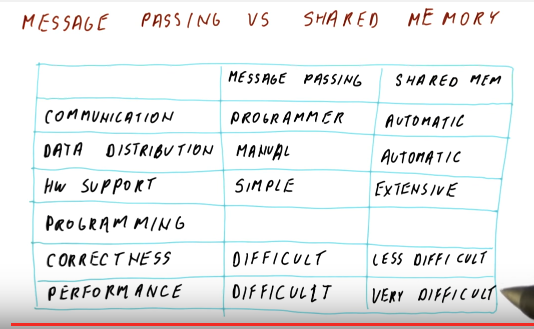 MESSAGE PASSING VS SHARED MEMORY
MESSAGE PASSING SHARED MEM
COMMUNICATION PROGRAMMER AUTOMATIC
DATA DISTRIBUTION MANUAL AUTOMATIC
HW SUPPORT SIMPLE EXTENSIVE
PROGRAMMING
CORRECTNESS DIFFICULT LESS DIFFICULT
PERFORMANCE DIFFICULT VERY DIFFICULT